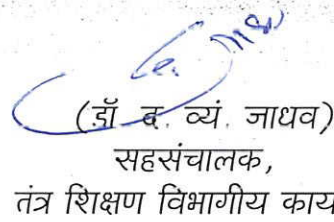 (डॉ. द. व्यं. जाधव)
सहसंचालक,
तंत्र शिक्षण विभागीय कार्य